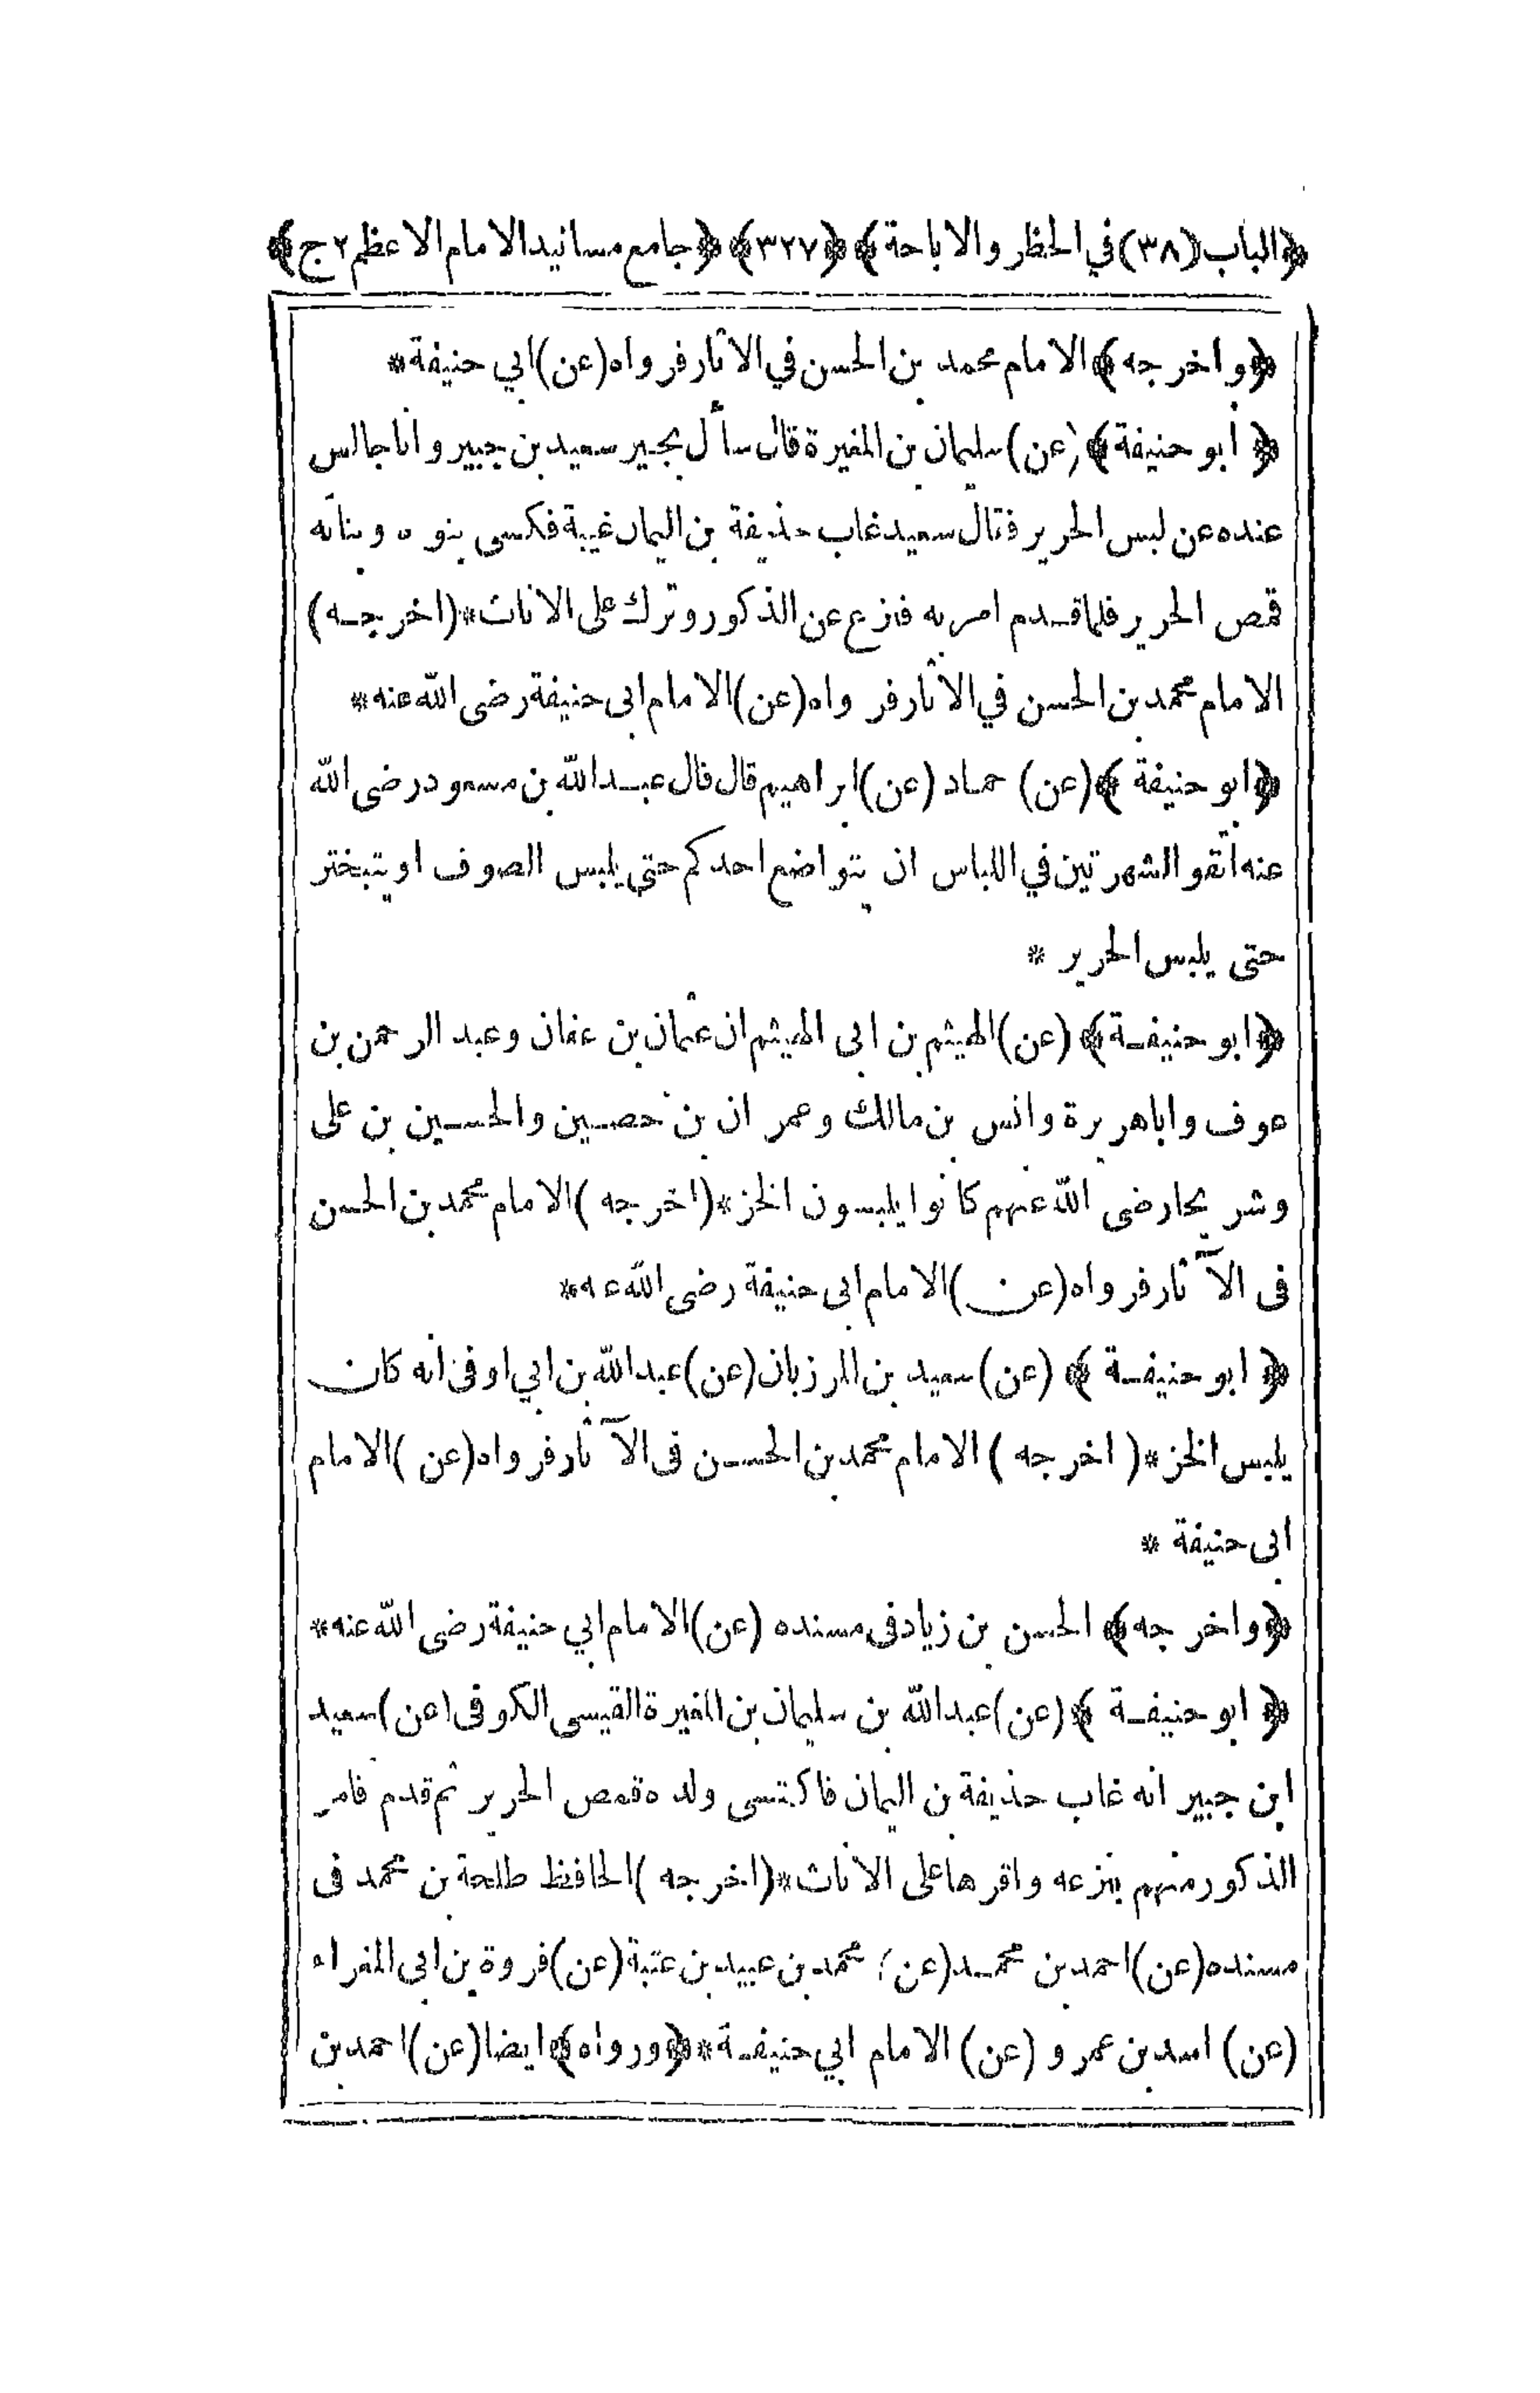 ﴿الباب (٣٨) في الحظر والاباحة﴾ ﴿٣٢٧﴾ ﴿جامع مسانيد الامام الاعظم ٢ ج﴾
﴿واخرجه﴾ الامام محمد بن الحسن في الاثار فرواه (عن) ابي حنيفة *
﴿أبو حنيفة﴾ (عن) سليمان بن المغيرة قال سأل بجير سعيد بن جبير وانا جالس
عنده عن لبس الحرير فقال سعيد غاب حذيفة بن اليمان غيبة فكسى بنوه وبناته
قمص الحرير فلما قدم امر به فنزع عن الذكور وترك على الاناث * (اخرجه)
الامام محمد بن الحسن في الاثار فرواه (عن) الامام ابى حنيفة رضى الله عنه *
﴿ابو حنيفة﴾ (عن) حماد (عن) ابراهيم قال قال عبد الله بن مسعود رضى الله
عنه اتقو الشهرتين في اللباس ان يتواضع احدكم حتى يلبس الصوف او يتبختر
حتى يلبس الحرير *
﴿ابو حنيفة﴾ (عن) الهيثم بن ابى الهيثم ان عثمان بن عفان وعبد الرحمن بن
عوف واباهريرة وانس بن مالك وعمران بن حصين والحسين بن على
وشريحا رضى الله عنهم كانوا يلبسون الخز * (اخرجه) الامام محمد بن الحسن
فى الآثار فرواه (عن) الامام ابى حنيفة رضى الله عنه *
﴿ابو حنيفة﴾ (عن) سعيد بن المرزبان (عن) عبد الله بن ابي اوفى انه كان
يلبس الخز * (اخرجه) الامام محمد بن الحسن فى الآثار فرواه (عن) الامام
ابى حنيفة *
﴿واخرجه﴾ الحسن بن زياد فى مسنده (عن) الامام ابي حنيفة رضى الله عنه *
﴿ابو حنيفة﴾ (عن) عبد الله بن سليمان بن المغيرة القيسى الكوفى (عن) سعيد
ابن جبير انه غاب حذيفة بن اليمان فاكتسى ولده قمص الحرير ثم قدم فامر
الذكور منهم بنزعه واقرها على الاناث * (اخرجه) الحافظ طلحة بن محمد فى
مسنده (عن) احمد بن محمد (عن) محمد بن عبيد بن عتبة (عن) فروة بن ابى المغراء
(عن) اسد بن عمرو (عن) الامام ابي حنيفة * ﴿ورواه﴾ ايضا (عن) احمد بن